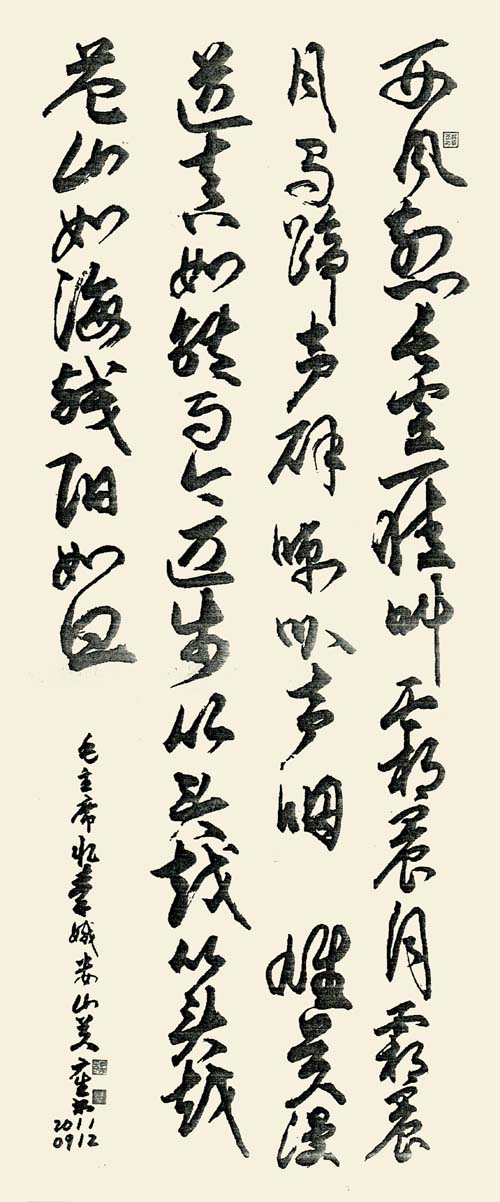 西风烈长空雁叫霜晨月霜晨
月马蹄声碎喇叭声咽 雄关漫
道真如铁而今迈步从头越从头越
苍山如海残阳如血
毛主席忆秦娥娄山关
2011
0912